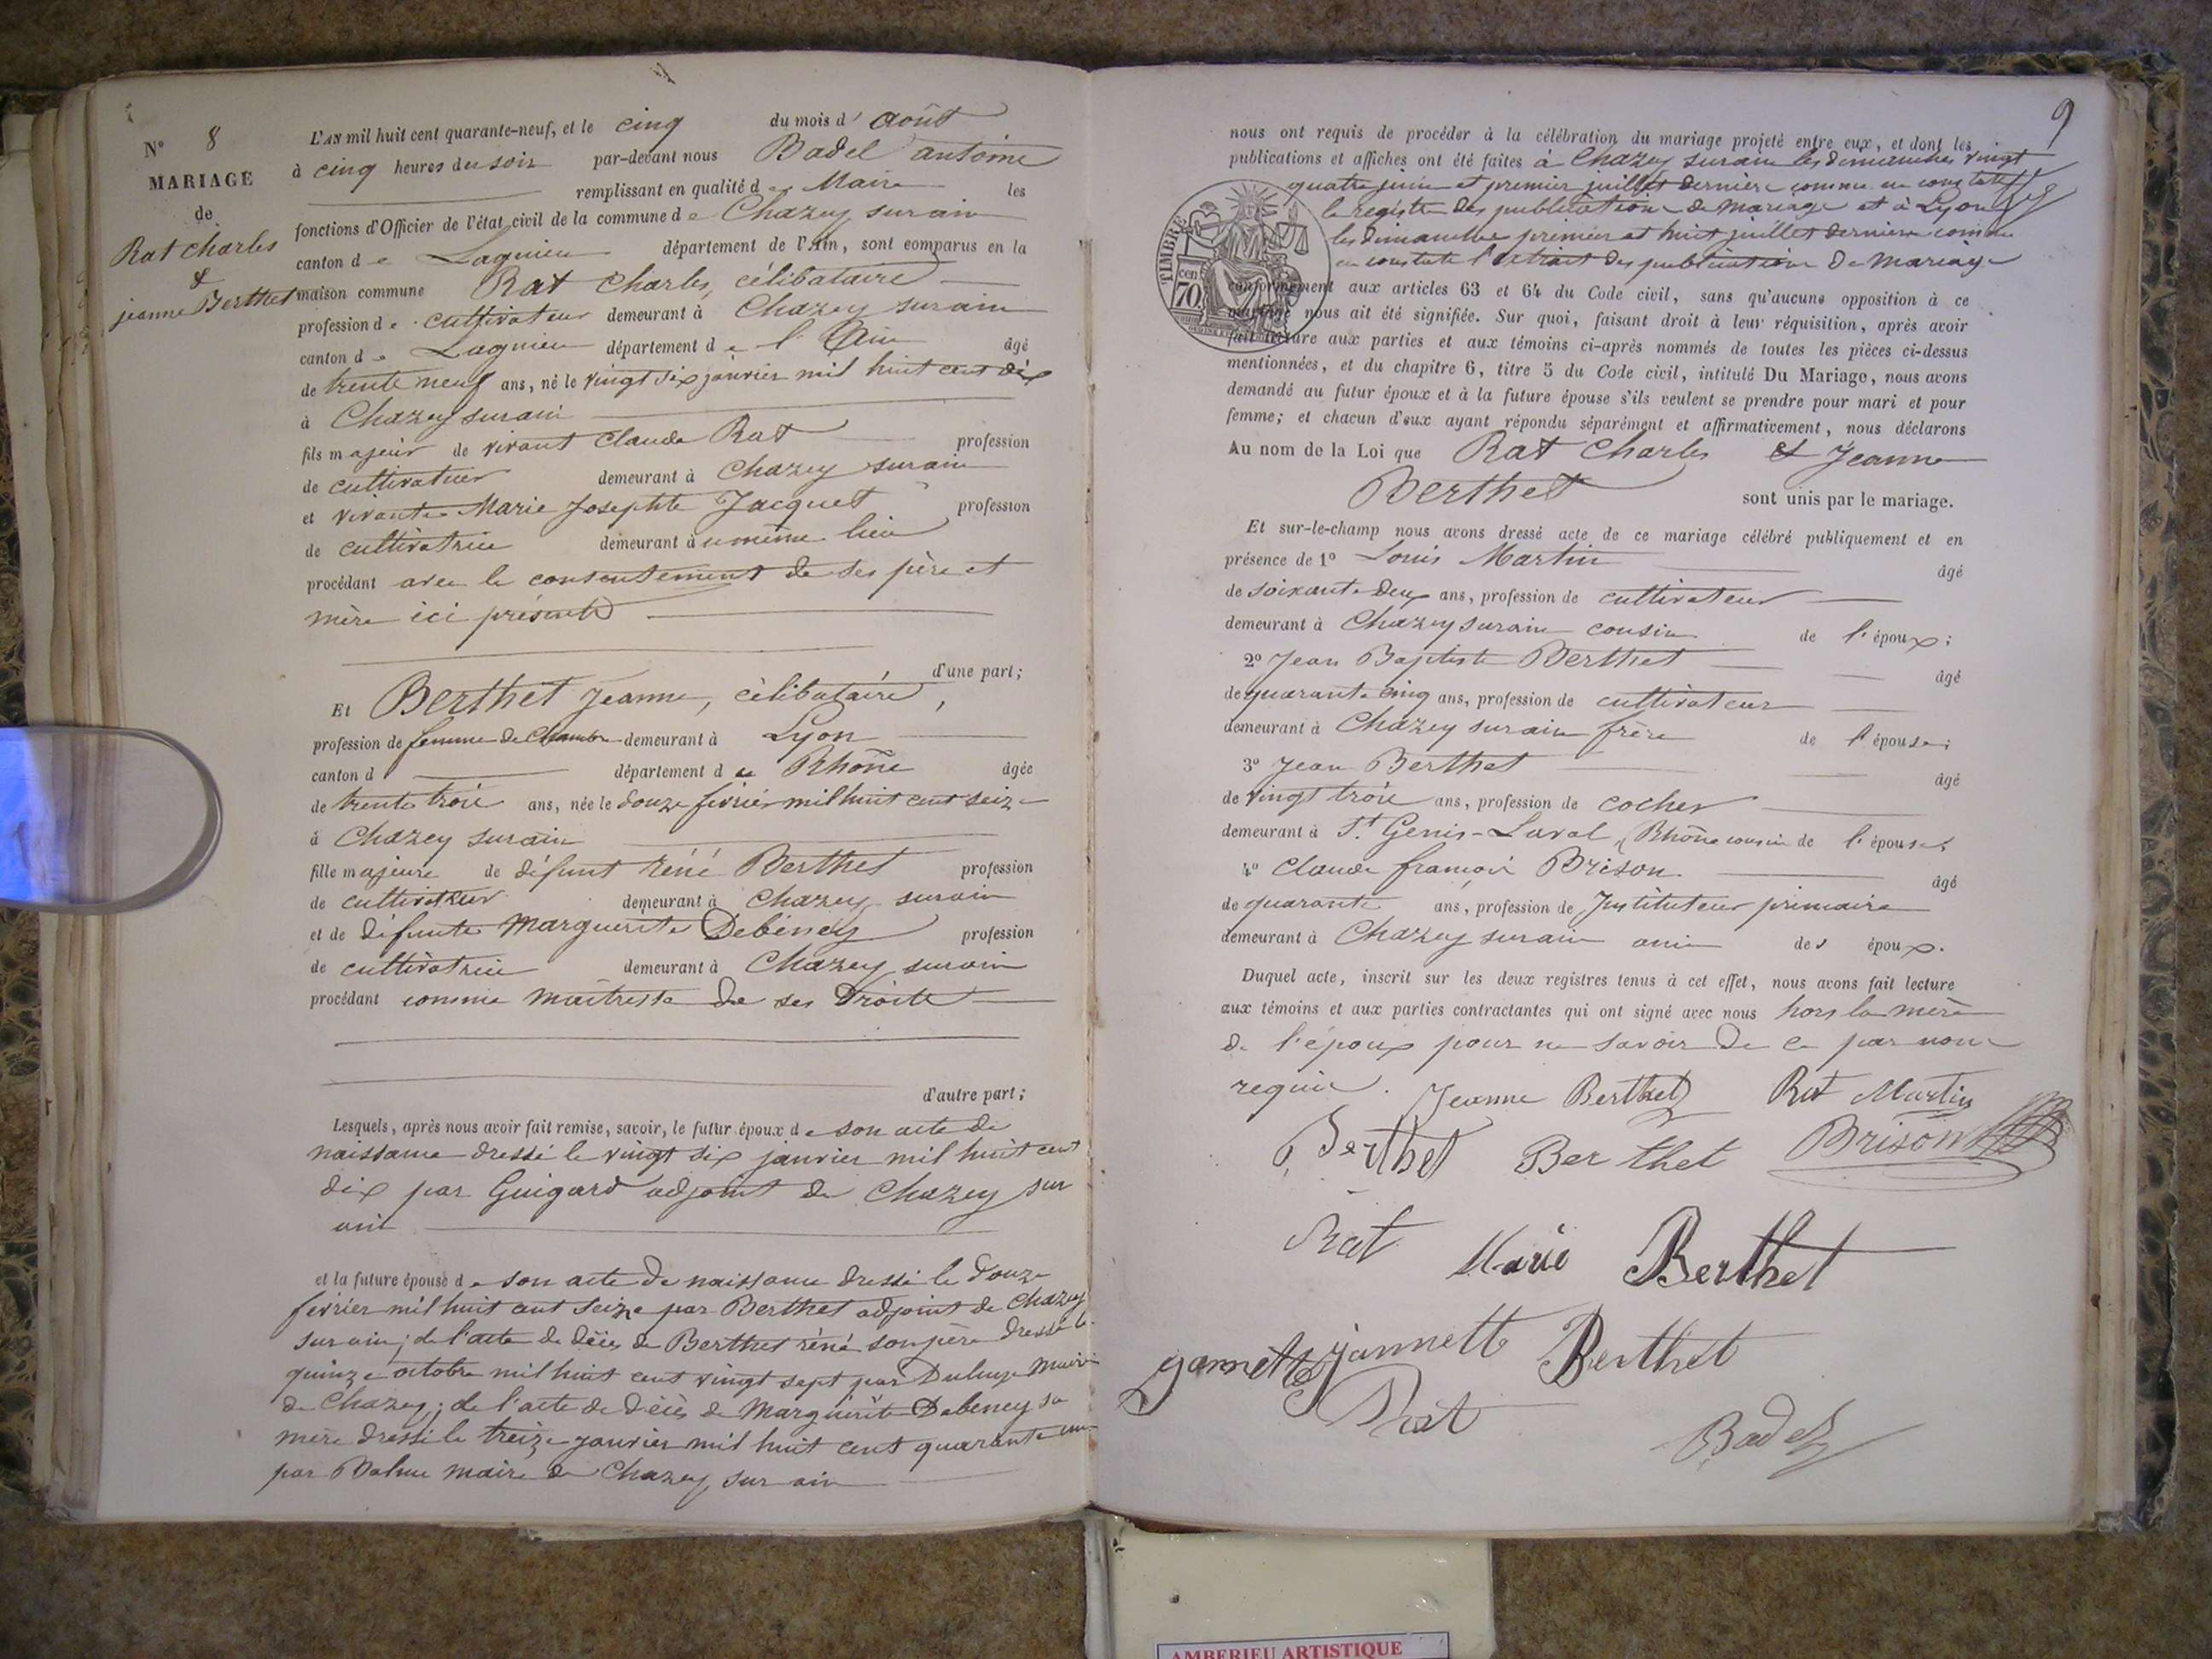 N° 8
MARIAGE
de
Rat Charles
&
jeanne Berthet
L'AN mil huit cent quarante-neuf, et le cinq du mois d' août
à cinq heures du soir par-devant nous Badel antoine
remplissant en qualité de Maire les
fonctions d'Officier de l'état civil de la commune de Chazey sur ain
canton de Lagnieu département de l'Ain, sont comparus en la
maison commune Rat Charles, célibataire
profession de cultivateur demeurant à Chazey sur ain
canton de Lagnieu département de l' Ain âgé
de trente neuf ans, né le vingt six janvier mil huit cent dix
à Chazey sur ain
fils majeur de vivant Claude Rat profession
de cultivateur demeurant à Chazey sur ain
et vivante Marie Josephte Jacquet profession
de cultivatrice demeurant au même lieu
procédant avec le consentement de ses père et
mère ici présents
d'une part;
Et Berthet Jeanne, célibataire,
profession de femme de Chambre demeurant à Lyon
canton d département du Rhône âgée
de trente trois ans, née le douze février mil huit cent seize
à Chazey sur ain
fille majeure de défunt réné Berthet profession
de cultivateur demeurant à Chazey sur ain
et de défunte Marguerite Debeney profession
de cultivatrice demeurant à Chazey sur ain
procédant comme maîtresse de ses droits
d'autre part;
Lesquels, après nous avoir fait remise, savoir, le futur époux de son acte de
naissance dressé le vingt six janvier mil huit cent
dix par Guigard adjoint de Chazey sur
ain
et la future épouse de son acte de naissance dressé le douze
février mil huit cent seize par Berthet adjoint de Chazey
sur ain; de l'acte de décès de Berthet réné son père dressé le
quinze octobre mil huit cent vingt sept par Maire
de Chazey; de l'acte de décès de Marguerite Debeney sa
mère dressé le treize janvier mil huit cent quarante un
par maire de Chazey sur ain
9
nous ont requis de procéder à la célébration du mariage projeté entre eux, et dont les
publications et affiches ont été faites à Chazey sur ain les dimanches vingt
quatre juin et premier juillet dernier comme en constate
le registre des publications de mariage et à Lyon
les dimanches premier et huit juillet dernier comme
en constate l'extrait des publications de mariage
TIMBRE
cen
70
conformément aux articles 63 et 64 du Code civil, sans qu'aucune opposition à ce
mariage nous ait été signifiée. Sur quoi, faisant droit à leur réquisition, après avoir
fait lecture aux parties et aux témoins ci-après nommés de toutes les pièces ci-dessus
mentionnées, et du chapitre 6, titre 5 du Code civil, intitulé Du Mariage, nous avons
demandé au futur époux et à la future épouse s'ils veulent se prendre pour mari et pour
femme; et chacun d'eux ayant répondu séparément et affirmativement, nous déclarons
Au nom de la Loi que Rat Charles et Jeanne
Berthet sont unis par le mariage.
Et sur-le-champ nous avons dressé acte de ce mariage célébré publiquement et en
présence de 1° Louis Martin âgé
de soixante deux ans, profession de cultivateur
demeurant à Chazey sur ain cousin de l'époux;
2° Jean Baptiste Berthet âgé
de quarante cinq ans, profession de cultivateur
demeurant à Chazey sur ain frère de l'épouse;
3° Jean Berthet âgé
de vingt trois ans, profession de cocher
demeurant à St Genis-Laval, Rhône cousin de l'épouse;
4° Claude françois Brison âgé
de quarante ans, profession de Instituteur primaire
demeurant à Chazey sur ain ami des époux.
Duquel acte, inscrit sur les deux registres tenus à cet effet, nous avons fait lecture
aux témoins et aux parties contractantes qui ont signé avec nous hors la mère
de l'époux pour ne savoir de ce par nous
requise. Jeanne Berthet Rat Martin
Berthet Berthet Brison
Rat Marie Berthet
jannette Berthet
Rat
Badel
AMBERIEU ARTISTIQUE